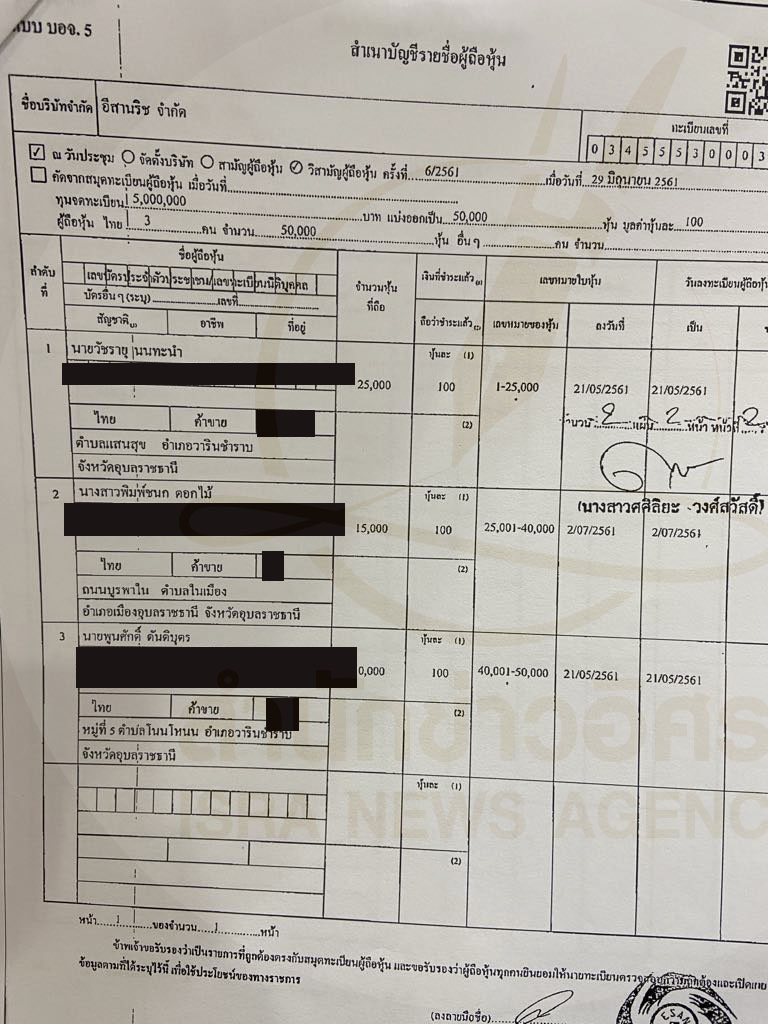 แบบ บอจ. 5
สำเนาบัญชีรายชื่อผู้ถือหุ้น
ชื่อบริษัทจำกัด อีสานริช จำกัด
ทะเบียนเลขที่
0 3 4 5 5 5 3 0 0 0 3
ณ วันประชุม จัดตั้งบริษัท สามัญผู้ถือหุ้น วิสามัญผู้ถือหุ้น ครั้งที่ 6/2561 เมื่อวันที่ 29 มิถุนายน 2561
คัดจากสมุดทะเบียนผู้ถือหุ้น เมื่อวันที่
ทุนจดทะเบียน 5,000,000 บาท แบ่งออกเป็น 50,000 หุ้น มูลค่าหุ้นละ 100
ผู้ถือหุ้น ไทย 3 คน จำนวน 50,000 หุ้น อื่น ๆ คน จำนวน
ลำดับที่
ชื่อผู้ถือหุ้น
เลขบัตรประจำตัวประชาชน/เลขทะเบียนนิติบุคคล
บัตรอื่น ๆ (ระบุ) เลขที่
สัญชาติ อาชีพ ที่อยู่
จำนวนหุ้นที่ถือ
เงินที่ชำระแล้ว
ถือว่าชำระแล้ว
เลขหมายใบหุ้น
วันลงทะเบียนผู้ถือหุ้น
เลขหมายของหุ้น ลงวันที่ เป็น
1 นายวัชรายุ นนทะนำ หุ้นละ (1)
25,000 100 1-25,000 21/05/2561 21/05/2561
ไทย ค้าขาย (2)
จำนวน 2 แผ่น 2 หน้า หน้าที่ 2
ตำบลแสนสุข อำเภอวารินชำราบ
จังหวัดอุบลราชธานี
(นางสาวศศิลิยะ วงศ์สวัสดิ์)
2 นางสาวพิมพ์ชนก ดอกไม้ หุ้นละ (1)
15,000 100 25,001-40,000 2/07/2561 2/07/2561
ไทย ค้าขาย (2)
ถนนบูรพาใน ตำบลในเมือง
อำเภอเมืองอุบลราชธานี จังหวัดอุบลราชธานี
3 นายพูนศักดิ์ ตันติบุตร หุ้นละ (1)
0,000 100 40,001-50,000 21/05/2561 21/05/2561
ไทย ค้าขาย (2)
หมู่ที่ 5 ตำบลโนนโหนน อำเภอวารินชำราบ
จังหวัดอุบลราชธานี
หุ้นละ (1)
(2)
สำนักข่าวอิศรา
ISRA NEWS AGENC
หน้า 1 ของจำนวน 1 หน้า
ข้าพเจ้าขอรับรองว่าเป็นรายการที่ถูกต้องตรงกับสมุดทะเบียนผู้ถือหุ้น และขอรับรองว่าผู้ถือหุ้นทุกคนยินยอมให้นายทะเบียนตรวจสอบความถูกต้องและเปิดเผย
ข้อมูลตามที่ได้ระบุไว้นี้ เพื่อใช้ประโยชน์ของทางราชการ
(ลงลายมือชื่อ)
ESAN